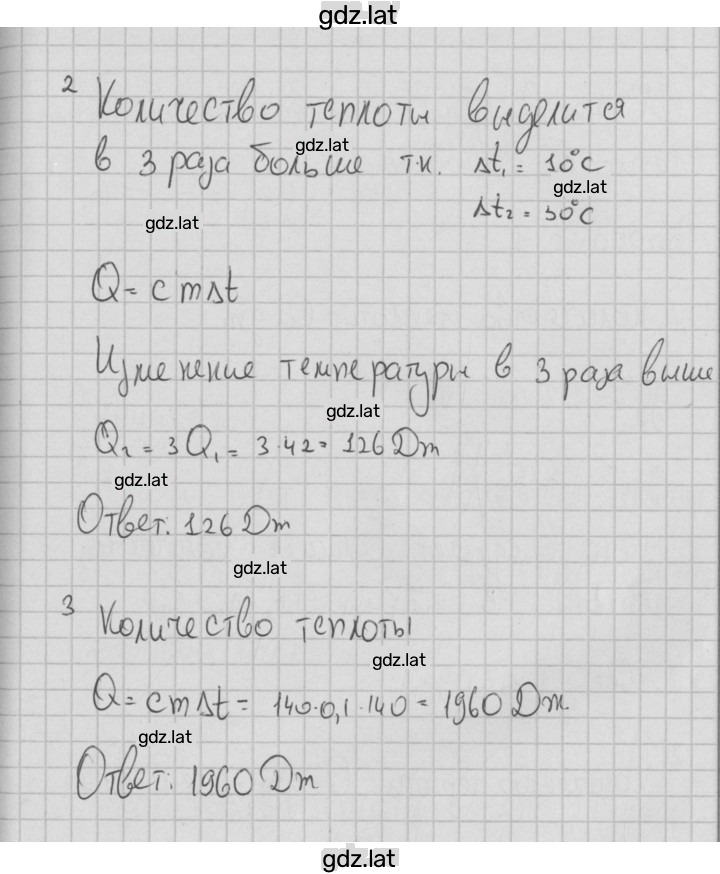 gdz.lat
2 Количество теплоты выделится
gdz.lat
в 3 раза больше т.к. Δt₁ = 10°C
gdz.lat
Δt₂ = 30°C
gdz.lat
Q = cmΔt
Изменение температуры в 3 раза выше
gdz.lat
Q₂ = 3Q₁ = 3·42 = 126 Дж
gdz.lat
Ответ. 126 Дж
gdz.lat
3 Количество теплоты
gdz.lat
Q = cmΔt = 140·0,1·140 = 1960 Дж.
gdz.lat
Ответ: 1960 Дж
gdz.lat